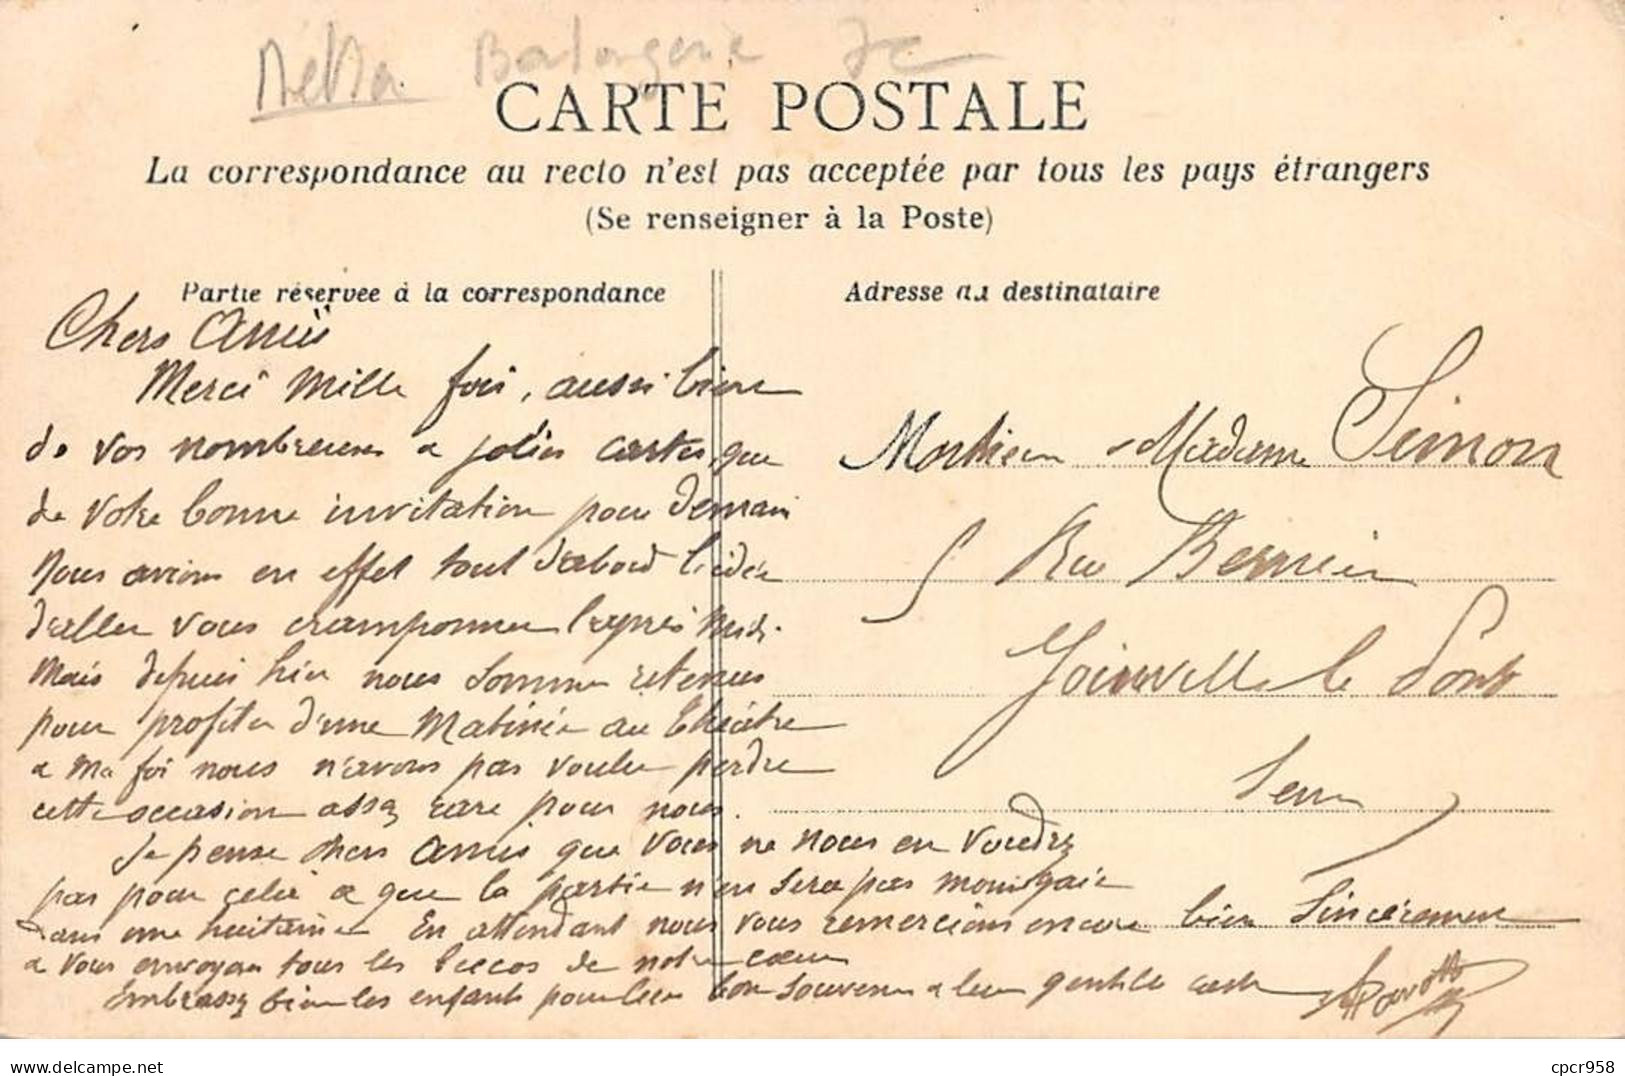 CARTE POSTALE
La correspondance au recto n'est pas acceptée par tous les pays étrangers
(Se renseigner à la Poste)
Partie réservée à la correspondance
Chers Amis
Merci Mille fois, aussi bien
de vos nombreuses & jolies cartes que
de votre bonne invitation pour demain
Nous avions en effet tout d'abord l'idée
d'aller vous cramponner l'après midi.
Mais depuis hier nous sommes retenus
pour profiter d'une Matinée au théâtre
& ma foi nous n'avons pas voulu perdre
cette occasion assez rare pour nous.
Je pense chers Amis que vous ne nous en voudrez
pas pour cela & que la partie n'en sera pas moins gaie
dans une huitaine En attendant nous vous remercions encore bien sincèrement
& vous envoyons tous les de notre cœur
Embrassez bien les enfants pour leur bon souvenir & leur gentille carte
Adresse du destinataire
Monsieur & Madame Simon
5 Rue Bernier
Joinville le Pont
Seine
cpcr958